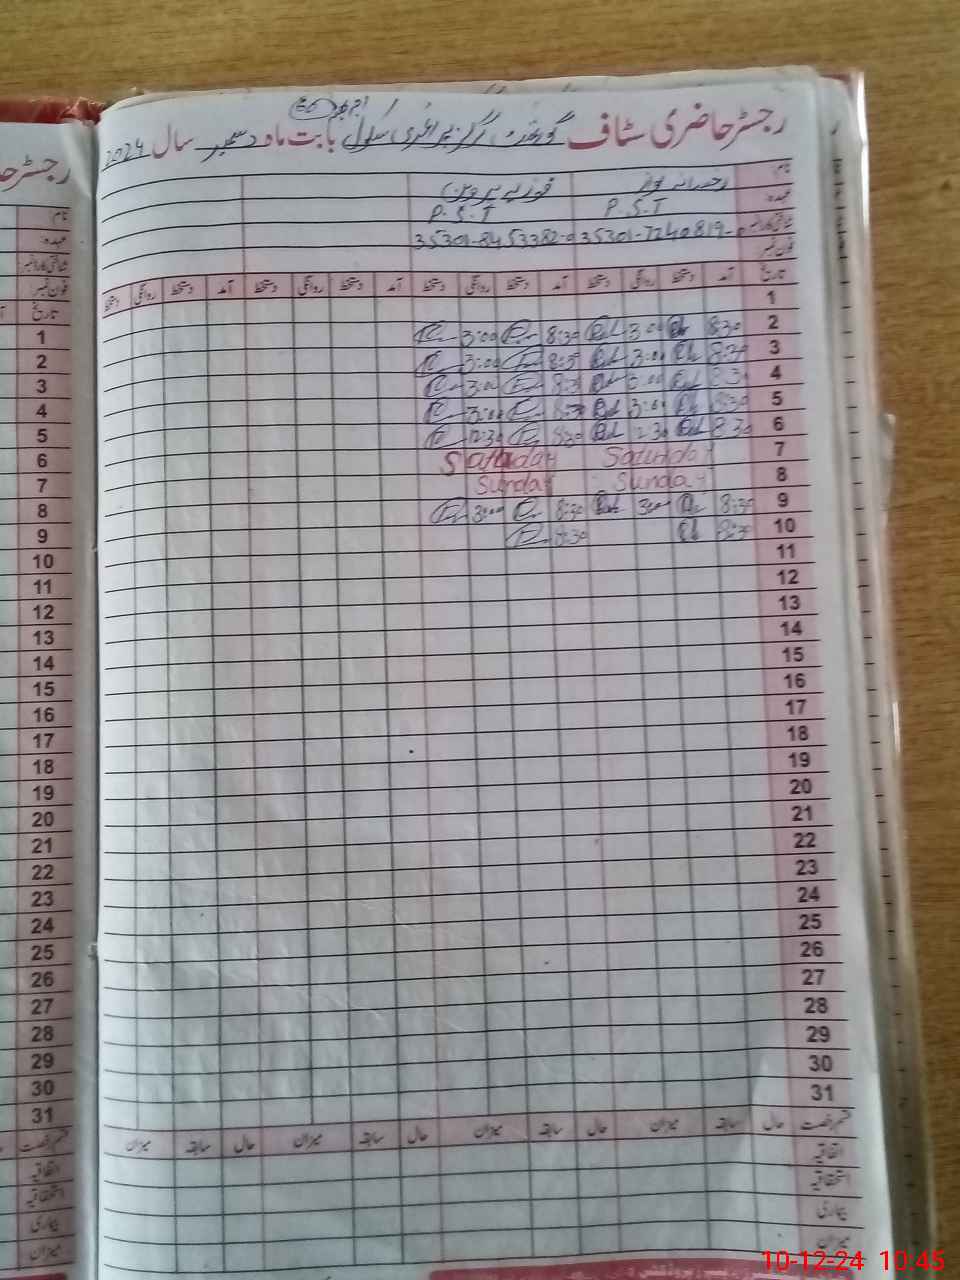 رجسٹر حاضری سٹاف گورنمنٹ گرلز پرائمری سکول بابت ماہ دسمبر سال 2024
نام
عہدہ P.S.T P.S.T
شناختی کارڈ نمبر 35301-7240819- 35301-8453382-0
فون نمبر
تاریخ آمد دستخط روانگی دستخط آمد دستخط روانگی دستخط آمد دستخط روانگی دستخط آمد دستخط روانگی دستخط
1
2 8:30 3:00 8:30 3:00
3 8:30 3:00 8:30 3:00
4 8:30 3:00 8:30 3:00
5 8:30 3:00 8:30 3:00
6 8:30 12:30 8:30 12:30
7 Saturday Saturday
8 Sunday Sunday
9 8:30 3:00 8:30 3:00
10 8:30 8:30
11
12
13
14
15
16
17
18
19
20
21
22
23
24
25
26
27
28
29
30
31
قسم رخصت حال سابقہ میزان حال سابقہ میزان حال سابقہ میزان حال سابقہ میزان
اتفاقیہ
استحقاقیہ
بیماری
میزان
رجسٹر حا
نام
عہدہ
شناختی کارڈ نمبر
فون نمبر
تاریخ
1
2
3
4
5
6
7
8
9
10
11
12
13
14
15
16
17
18
19
20
21
22
23
24
25
26
27
28
29
30
31
قسم رخصت
اتفاقیہ
استحقاقیہ
بیماری
میزان
10-12-24 10:45